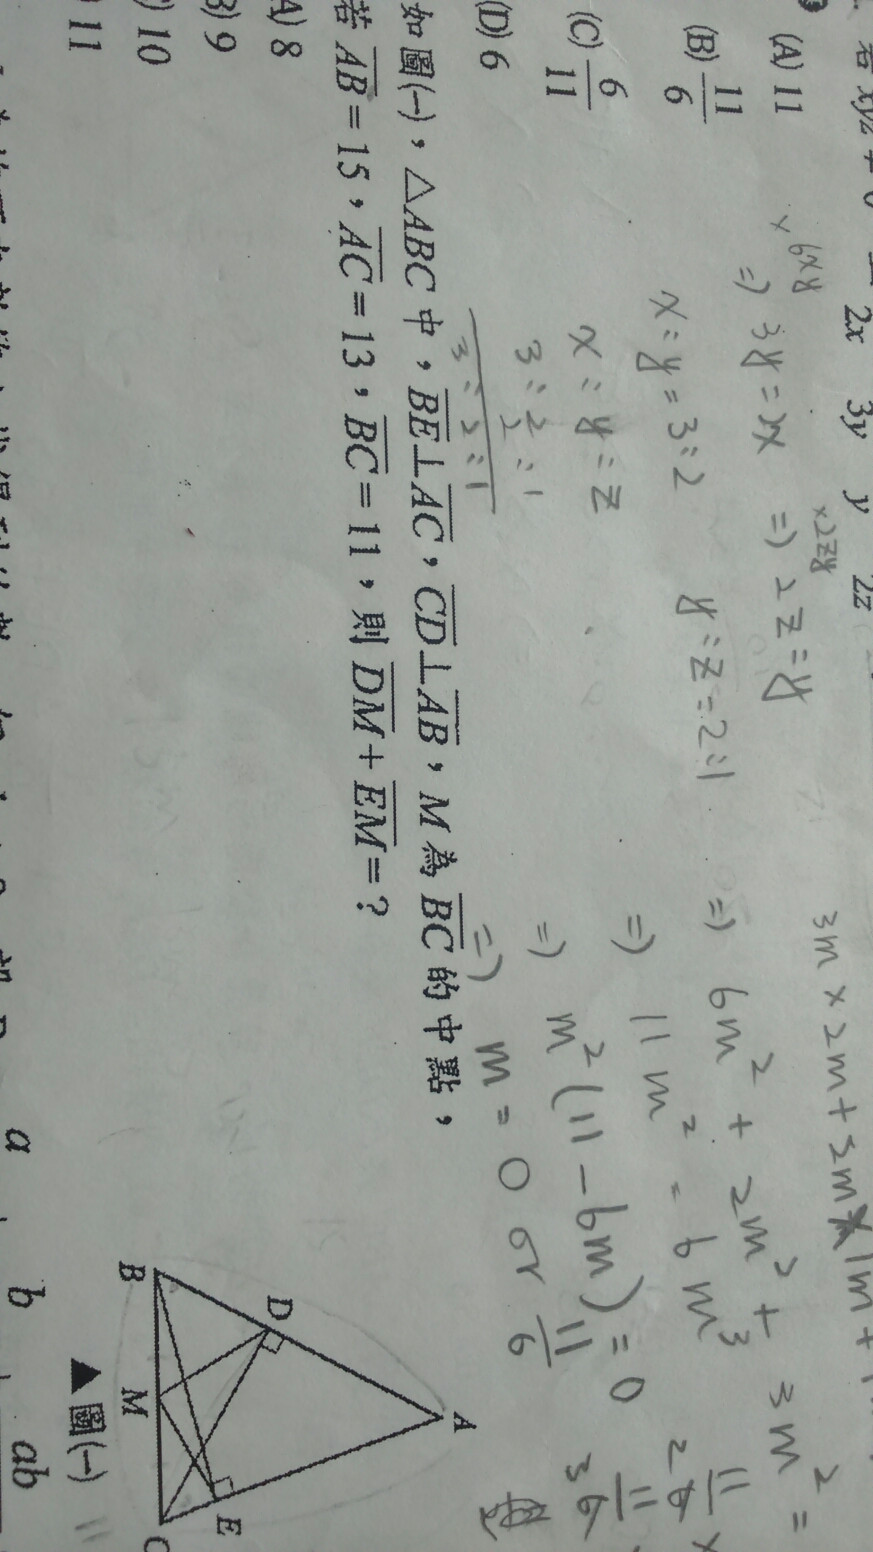 若 xyz ≠ 0
2x 3y y 2z
(A) 11
(B) 11/6
(C) 6/11
(D) 6
×6xy ×2zy
⇒ 3y = 2x ⇒ 2z = y
x : y = 3 : 2 y : z = 2 : 1
x : y : z
3 : 2 : 1
3 : 2 : 1
3m × 2m + 2m × 1m +
⇒ 6m² + 2m² + 3m² =
⇒ 11m² = 6m³
⇒ m² (11 − 6m) = 0
⇒ m = 0 or 11/6
如圖(一)，△ABC 中，BE⊥AC，CD⊥AB，M 為 BC 的中點，
若 AB = 15，AC = 13，BC = 11，則 DM + EM = ?
(A) 8
(B) 9
(C) 10
11
A
D
E
B M C
▲圖(一)
11
a b ab